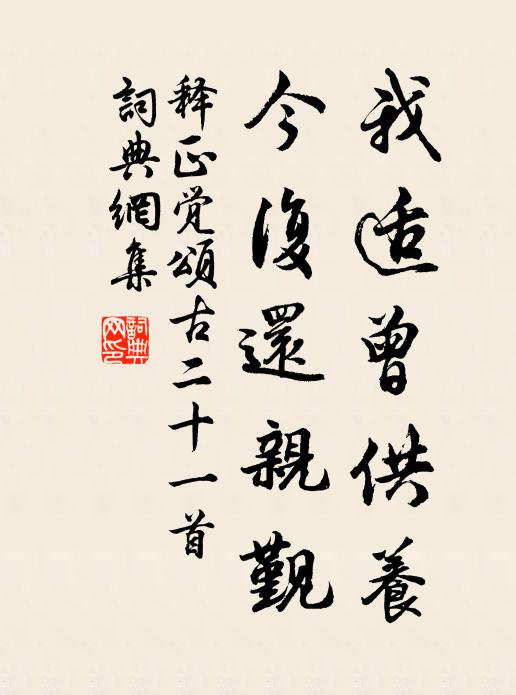 我适曾供養
今復還親覲
释正覚頌古二十一首
詞典網集
詞典網印